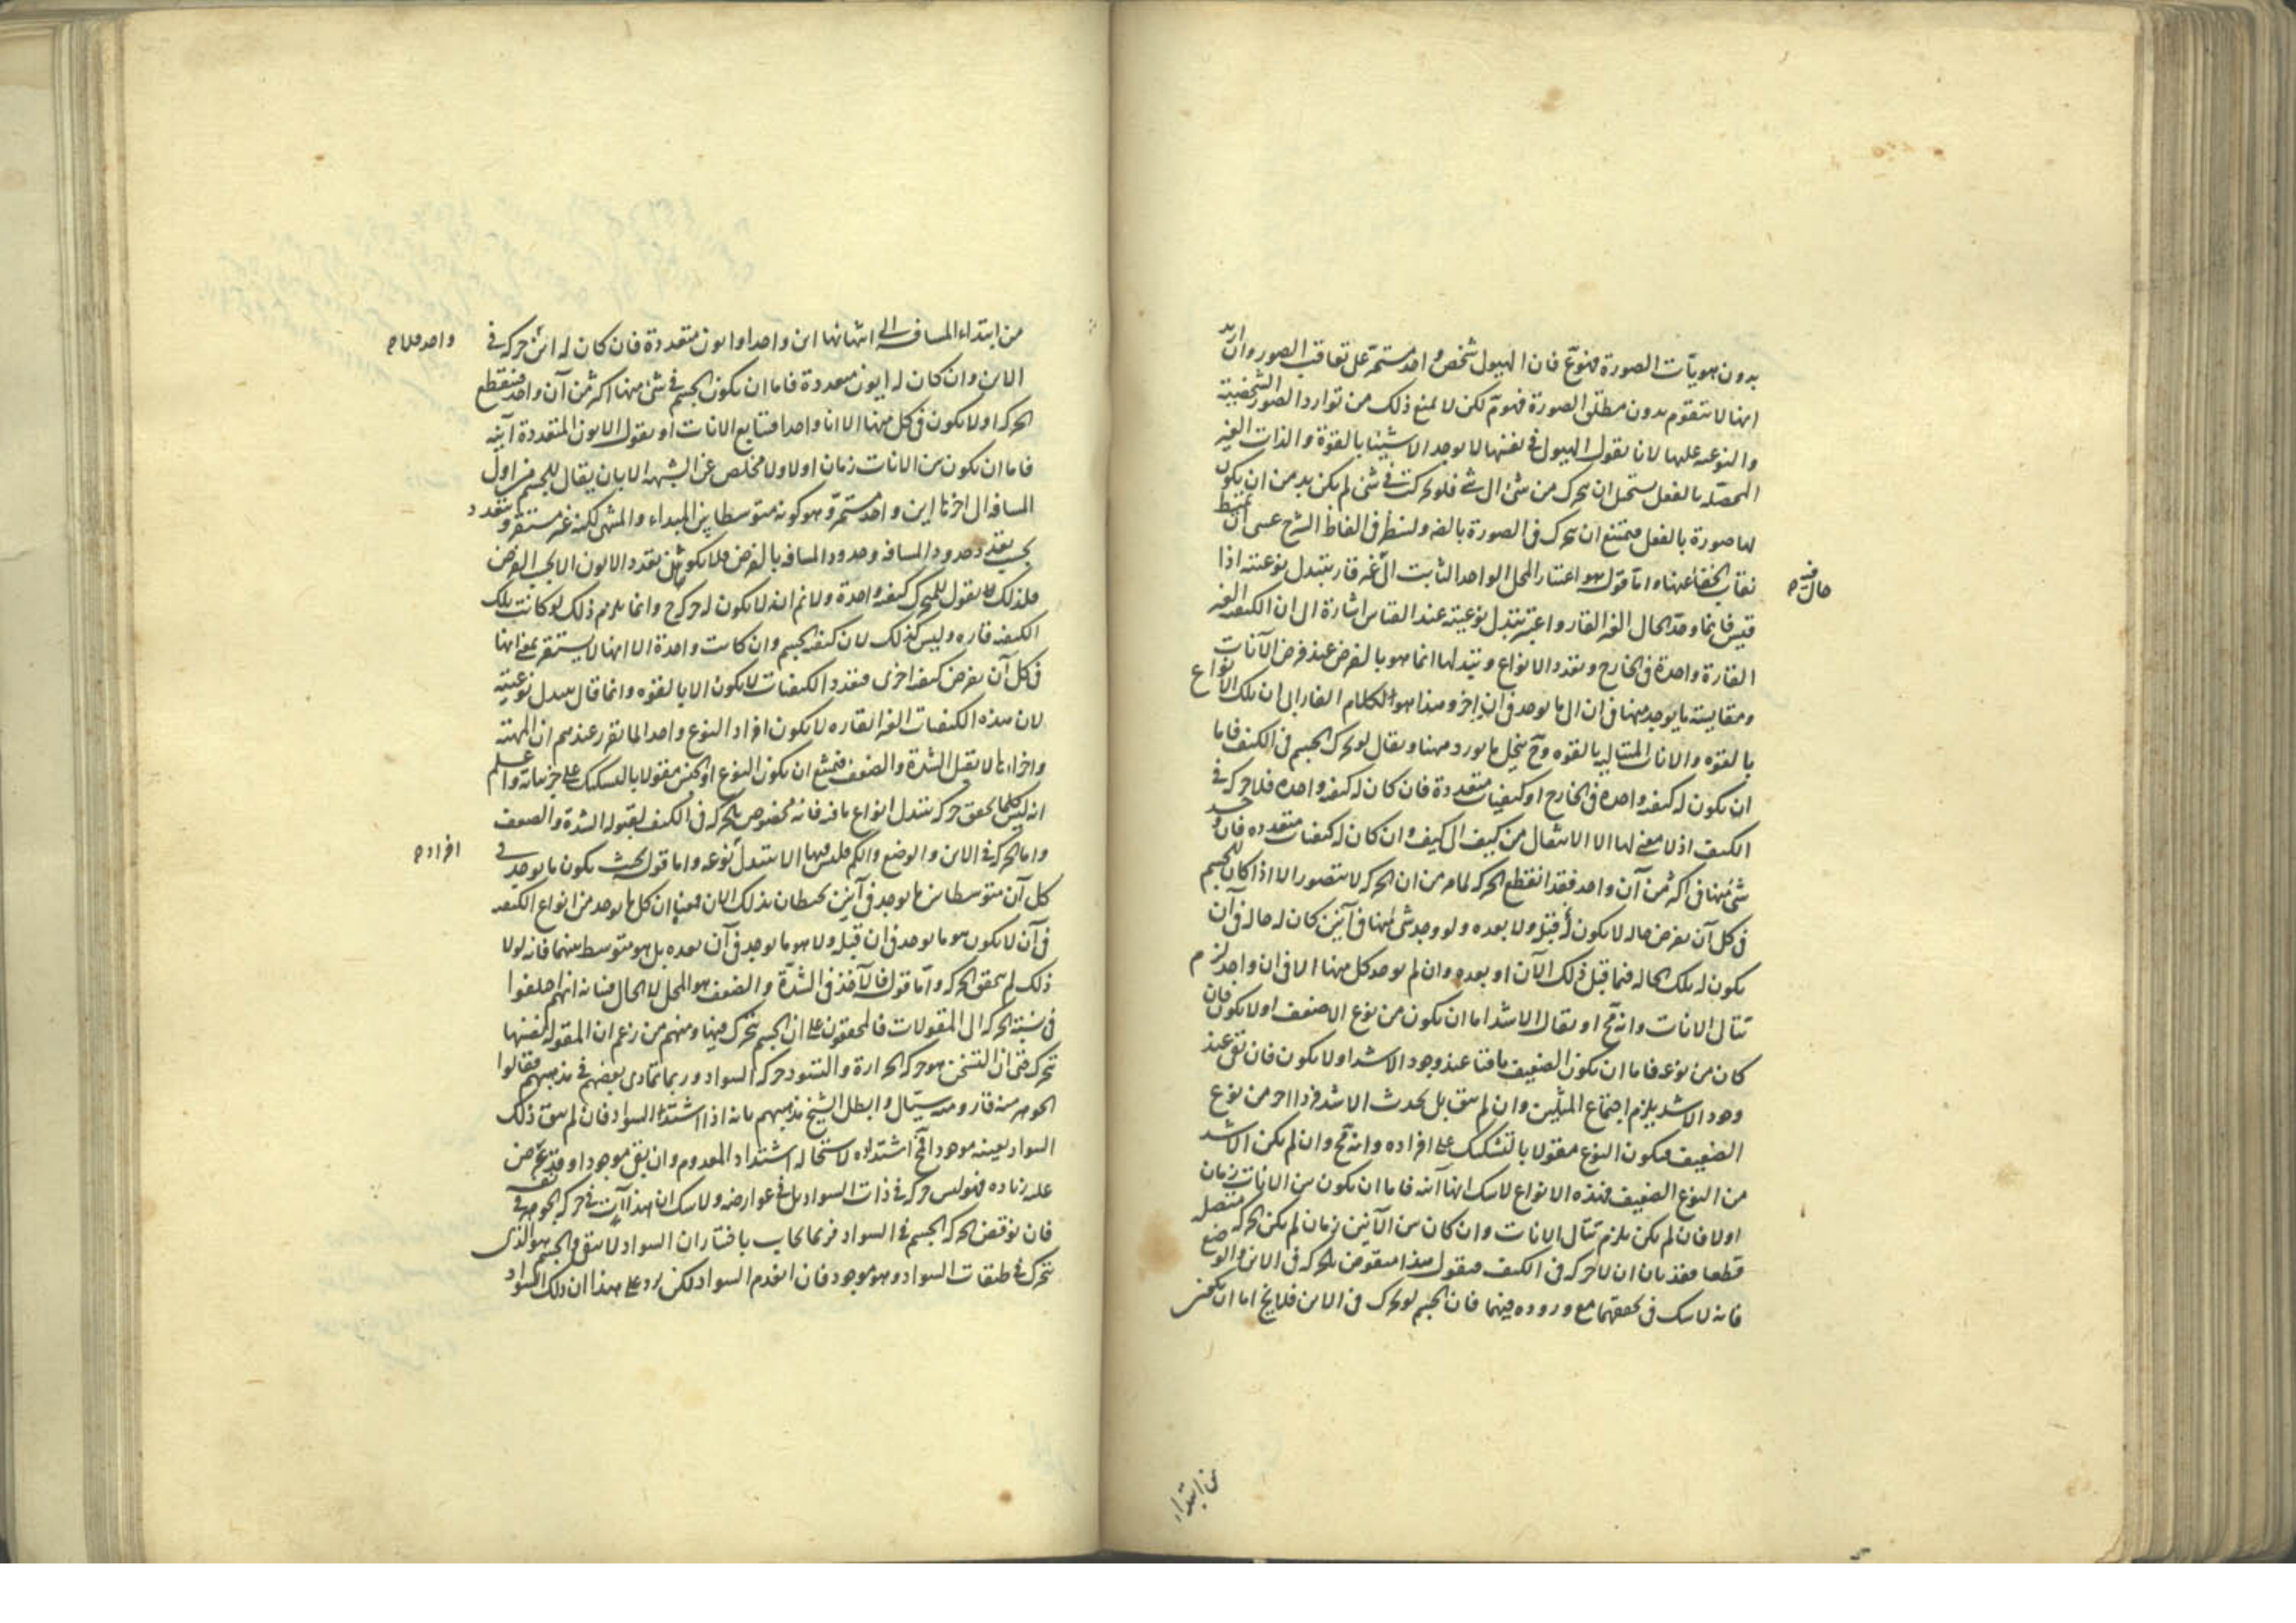 بدون هويات الصورة فنوع فان الهيولى شخص واحد مستمر على تعاقب الصور وان اريد
انها لا تتقوم بدون مطلق الصورة فهو مم لكن لا يمنع ذلك من توارد الصور الشخصية
والنوعيه عليها لانا نقول الهيولى في نفسها لا توجد الا شيئا بالقوة والذات الغير
المحصله بالفعل يستحيل ان يتحرك من شئ الى شئ فلو تحركت في شئ لم يكن بد من ان يكون
لها صورة بالفعل فيمتنع ان يتحرك في الصورة بالضرورة ولننظر في الفاظ الشرح عسى ان
نقاب الخفا عنها واما قوله هو اعتبار المحل الواحد الثابت الى حال فيه غير قار يتبدل نوعيته اذا
قيس فانما وحد الحال الغير القار واعتبر تبدل نوعيته عند القياس اشارة الى ان الكيفيه الغير
القارة واحدة في الخارج وتعدد الانواع وتبدلها انما هو بالفرض عند فرض الآنات
ومقايسة ما يوجد منها في ان الى ما يوجد في ان اخر وهذا هو الكلام الفارابى ان تلك الانواع
بالقوه والانات المتتاليه بالقوه وح ينحل ما يورد ههنا ويقال لو تحرك الجسم في الكيف فاما
ان يكون له كيفيه واحدة في الخارج او كيفيات متعددة فان كان له كيفيه واحده فلا حركة في
الكيف اذ لا معنى لها الا الانتقال من كيف الى كيف وان كان له كيفيات متعدده فان وجد
شئ منها في اكثر من آن واحد فقد انقطع الحركه لما مر من ان الحركه لا يتصور الا اذا كان للجسم
في كل آن يفرض حاله لا يكون له قبله ولا بعده ولو وجد شئ منها في آنين كان له حاله في آن
يكون له تلك الحاله فيما قبل ذلك الآن او بعده وان لم يوجد كل منها الا في ان واحد لزم
تتالى الانات وانه مح او يقال الاشد اما ان يكون من نوع الاضعف او لا يكون فان
كان من نوعه فاما ان يكون الضعيف باقيا عند وجود الاشد او لا يكون فان بقى عند
وجود الاشد يلزم اجتماع المثلين وان لم يبق بل يحدث الاشد فردا اخر من نوع
الضعيف فيكون النوع مقولا بالتشكيك على افراده وانه مح وان لم يكن الاشد
من النوع الضعيف فهذه الانواع لا شك انها آنيه فاما ان يكون بين الانات زمان
اولا فان لم يكن يلزم تتالى الانات وان كان بين الآنين زمان لم يكن الحركه متصله
قطعا فقد بان ان لا حركه في الكيف فنقول هذا منقوض بالحركه في الاين والوضع
فانه لا شك في تحققهما مع وروده فيهما فان الجسم لو تحرك في الاين فلا يخ اما ان يكون
حال فيه
من ابتداء
من ابتداء المسافه الى انتهائها اين واحد او ايون متعددة فان كان له اين واحد فلا حركه في
الاين وان كان له ايون متعددة فاما ان يكون الجسم في شئ منها اكثر من آن واحد فينقطع
الحركه او لا يكون في كل منها الا انا واحدا فتتابع الانات او نقول الايون المتعددة آنيه
فاما ان يكون بين الانات زمان اولا ولا مخلص عن الشبهه الا بان يقال للجسم من اول
المسافه الى اخرها اين واحد مستمر وهو كونه متوسطا بين المبداء والمنتهى لكنه غير مستقر ويتعدد
بحسب تعدد حدود المسافه وحدود المسافه بالفرض فلا يكون تعدد الايون الا بحسب الفرض
فلذلك نقول للمتحرك كيفيه واحدة ولا نم انه لا يكون له حركه ح وانما يلزم ذلك لو كانت تلك
الكيفيه قاره وليس كذلك لان كيفيه الجسم وان كانت واحدة الا انها لا يستقر بمعنى انها
في كل آن يفرض كيفيه اخرى فتعدد الكيفيات لا يكون الا بالقوه وانما قال يتبدل نوعيته
لان هذه الكيفيات الغير القاره لا يكون افراد النوع واحد لما تقرر عندهم ان المهيته
واجزاءها لا يقبل الشدة والضعف فيمتنع ان يكون النوع او الجنس مقولا بالتشكيك على جزئياته واعلم
انه ليس كلما تحقق حركه تبدل انواع ما فيه فانه مخصوص بالحركه في الكيف لقبوله الشدة والضعف
واما الحركه في الاين والوضع والكم فليس فيها الا تبدل افراد نوعه واما قوله بحيث يكون ما يوجد في
كل آن متوسطا بين ما يوجد في آنين يحيطان بذلك الان فمعناه ان كل ما يوجد من انواع الكيفيه
في آن لا يكون هو ما يوجد في ان قبله ولا هو ما يوجد في آن بعده بل هو متوسط بينهما فانه لولا
ذلك لم يتحقق الحركه واما قوله فالآخذ في الشدة والضعف هو المحل لا الحال فبيانه انهم اختلفوا
في نسبة الحركه الى المقولات فالمحققون على ان الجسم يتحرك فيها ومنهم من زعم ان المقوله نفسها
تتحرك حتى ان التسخن هو حركه الحرارة والتسود حركه السواد وربما تمادى بعضهم في مذهبهم فقالوا
الجوهر منه قار ومنه سيال وابطل الشيخ مذهبهم بانه اذا اشتد السواد فان لم يبق ذلك
السواد بعينه موجودا مح اشتداده لاستحاله اشتداد المعدوم وان بقى موجودا وقد عرض
عليه زياده فهو ليس حركه في ذات السواد بل في عوارضه ولا شك ان هذا آت في حركه الجوهر ايضا
فان نوقض بحركه الجسم في السواد فربما يجاب باختيار ان السواد لا يبقى والجسم هو الذى
يتحرك في طبقات السواد وهو موجود فان انعدم السواد لكن يرد على هذا ان ذلك السواد
واحد فلا
افراد